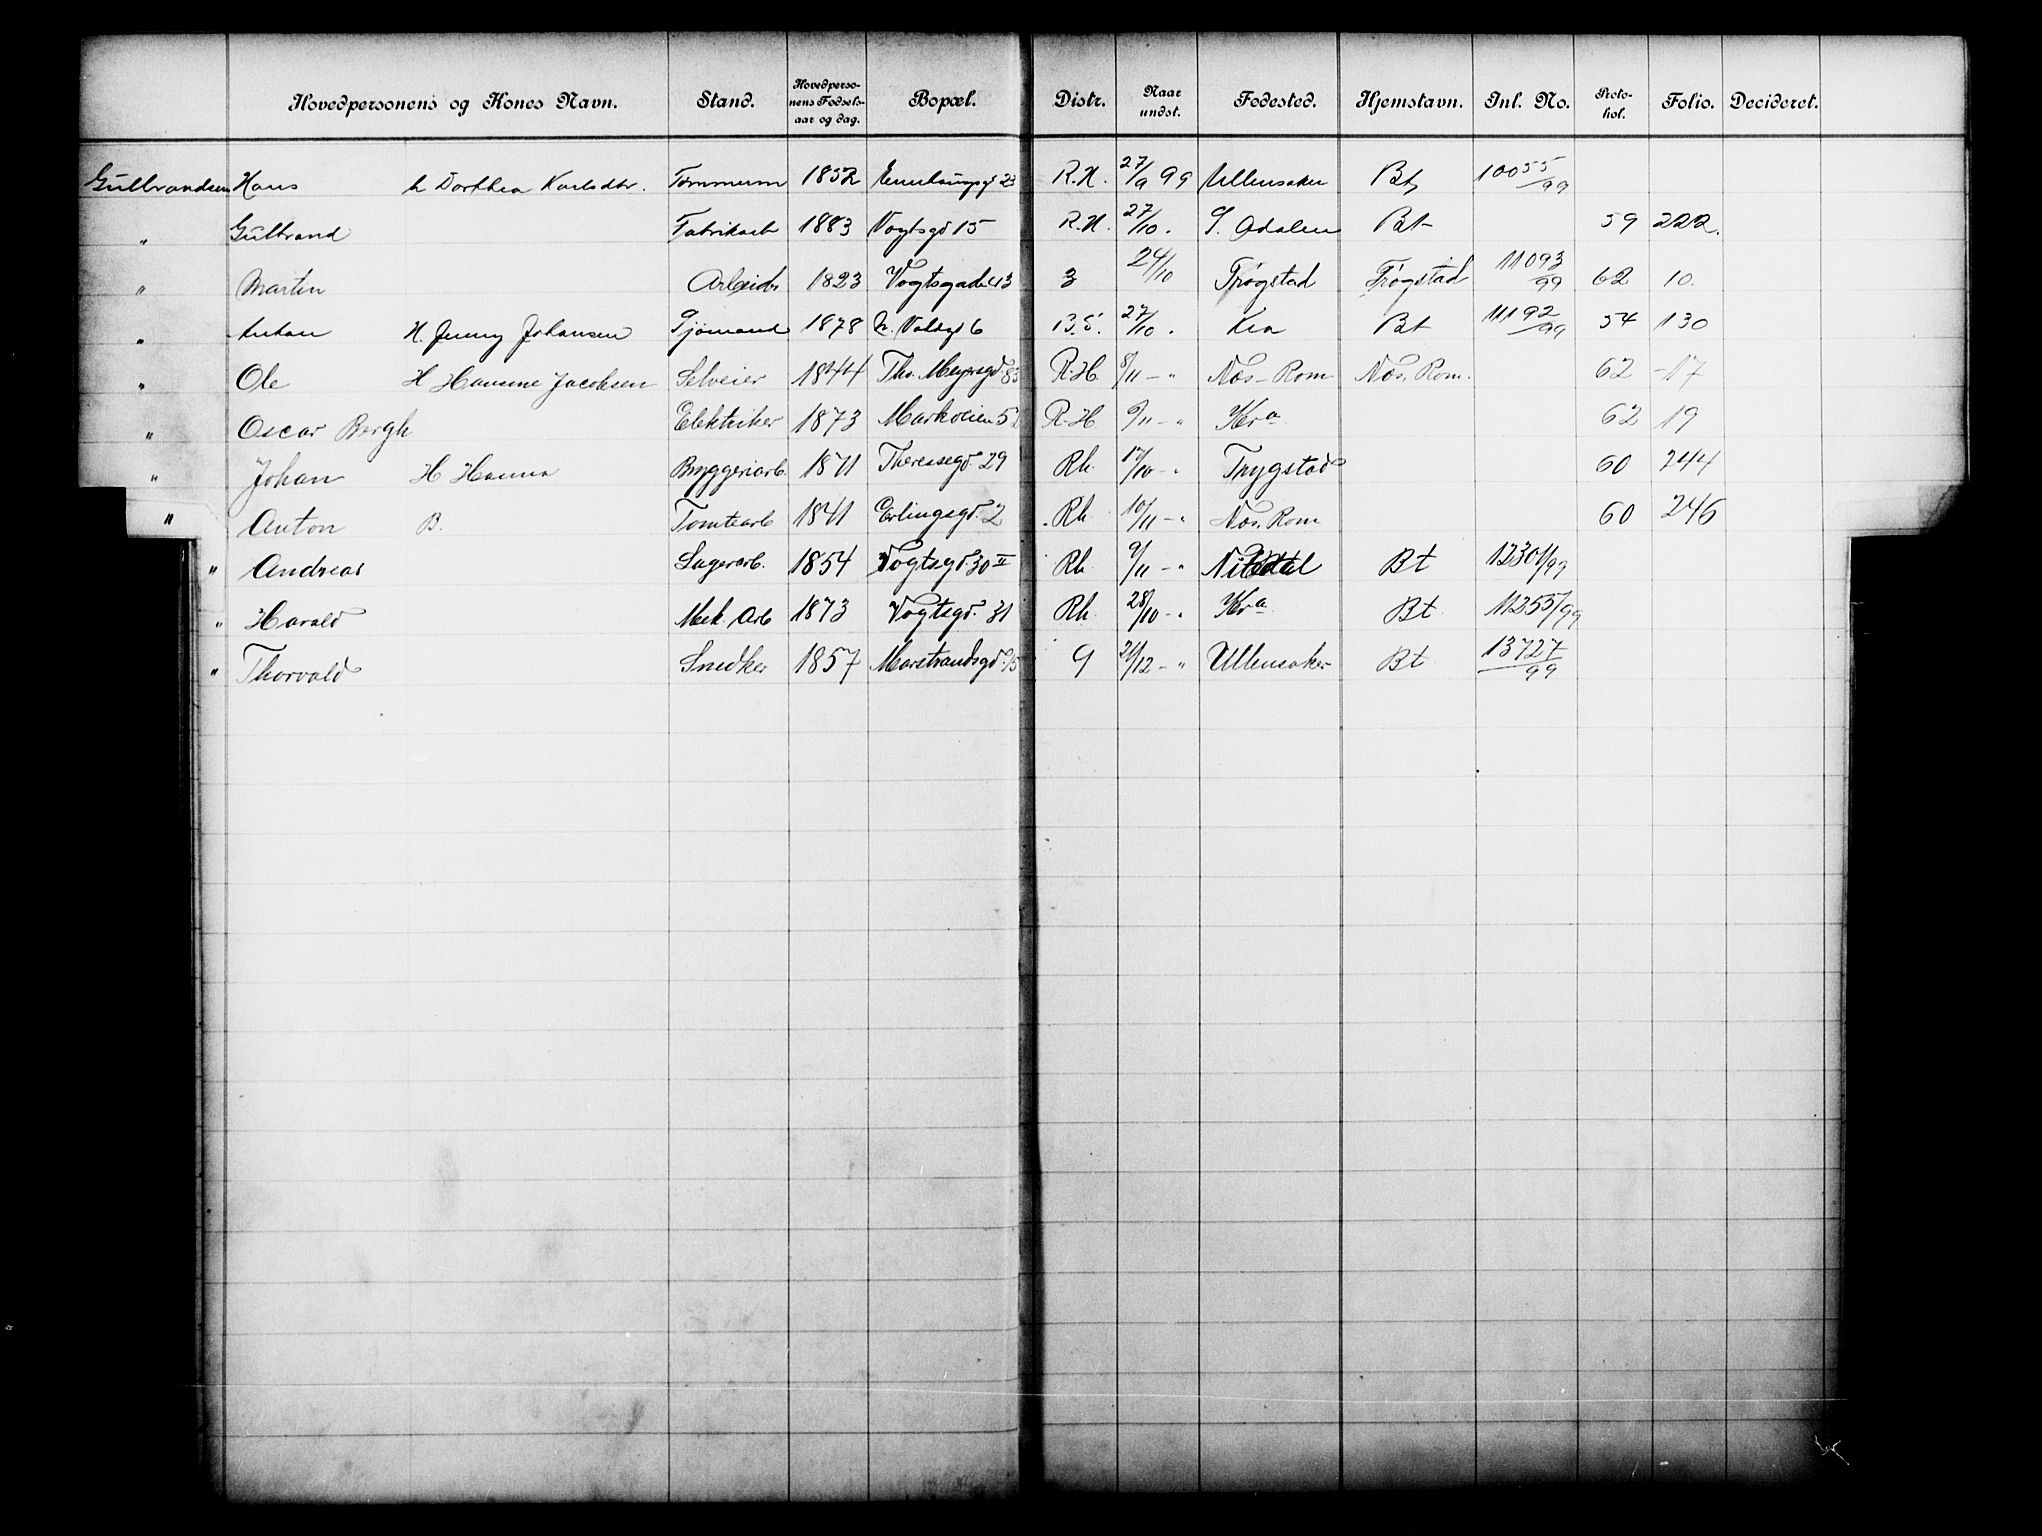 Hovedpersonens og Kones Navn. Stand. Hovedpersonens Fødselsaar og dag. Bopæl. Distr. Naar undst. Fødested. Hjemstavn. Inl. No. Protokol. Folio. Decideret.
Gulbrandsen Hans h Dorthea Karlsdtr. Tømmerm 1852 R.H. 27/9 99 Ullensaker Bt 10055/99
" Gulbrand Fabrikarb 1883 Vogtsgd 15 R.H. 27/10. S. Odalen Bt 59 222.
" Martin Arbeidr 1823 Vogtsgade 43 3 24/10 Trøgstad Trøgstad 11093/99 62 10.
" Anton H. Jenny Johansen Sjømand 1878 6 B.S. 27/10. Kra Bt 11192/99 54 130
" Ole H Hansine Jacobsen Selveier 1844 Th. Meyersgd. 83 R.H. 8/11 - " Næs - Rom Næs, Rom. 62 - 17
" Oscar Bergh Elektriker 1873 Markveien R.H 9/11 - " Kra 62 19
" Johan H Hanna Bryggeriarb. 1871 Theresegd. 29 Rh. 17/10 - " Trygstad 60 244
" Anton B. Tomtearb 1841 Erlingsgd. 2 Rh. 10/11 - " Næs, Rom 60 246
" Andreas Sagerarb. 1854 Vogtsgd. 30 II Rh. 9/11 - " Nitedal Bt 12301/99
" Harald Mek. Arb 1873 Vogtsgd. 31 Rh. 28/10 - " Kra Bt. 11355/99
" Thorvald Snedker 1857 Marstrandsgd. 9 21/12 - " Ullensaker Bt 13727/99